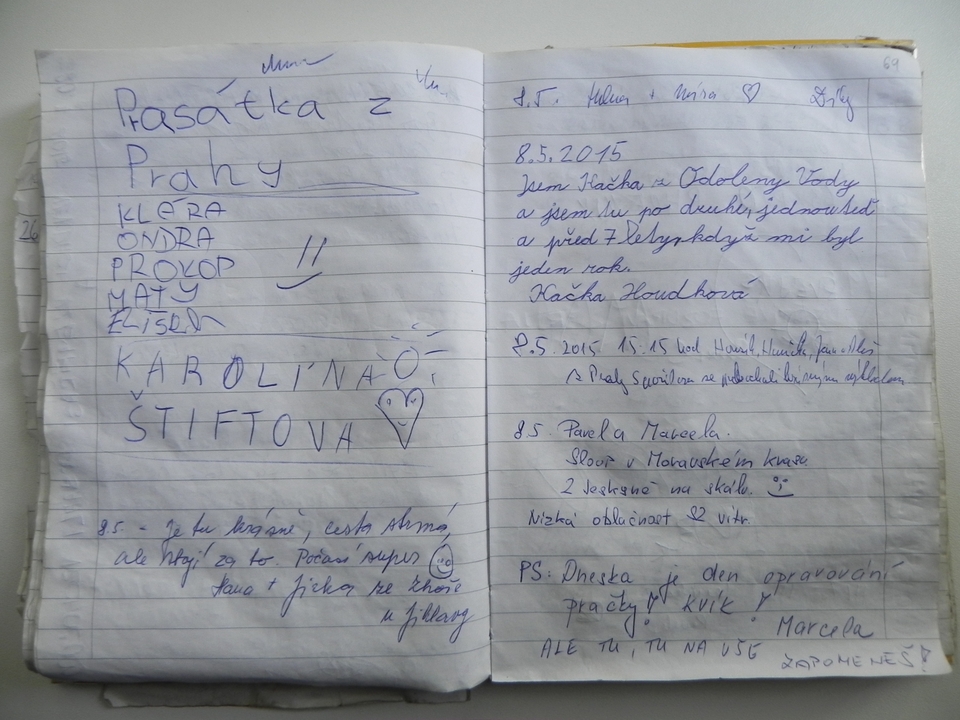 Prasátka z
Prahy
KLÁRA
ONDRA
PROKOP
MATY
KAROLÍNA
ŠTIFTOVA
8.5. - Je tu krásně, cesta strmá,
ale stojí za to. Počasí super
Hana + Jirka ze Zhoře
u Jihlavy
69
8.5. + ♡ Díky
8.5.2015
Jsem Kačka z Odoleny Vody
a jsem tu po druhé, jednou teď
a před 7 lety, když mi byl
jeden rok.
Kačka Houdková
8.5. 2015 15.15 hod
z Prahy
8.5. Pavel a Marcela.
Sloup v Moravském krasu
2 na skále.
Nízká oblačnost vítr.
PS: Dneska je den opravování
pračky! kvík!
Marcela
ALE TU, TU NA VŠE
ZAPOMENEŠ!
26